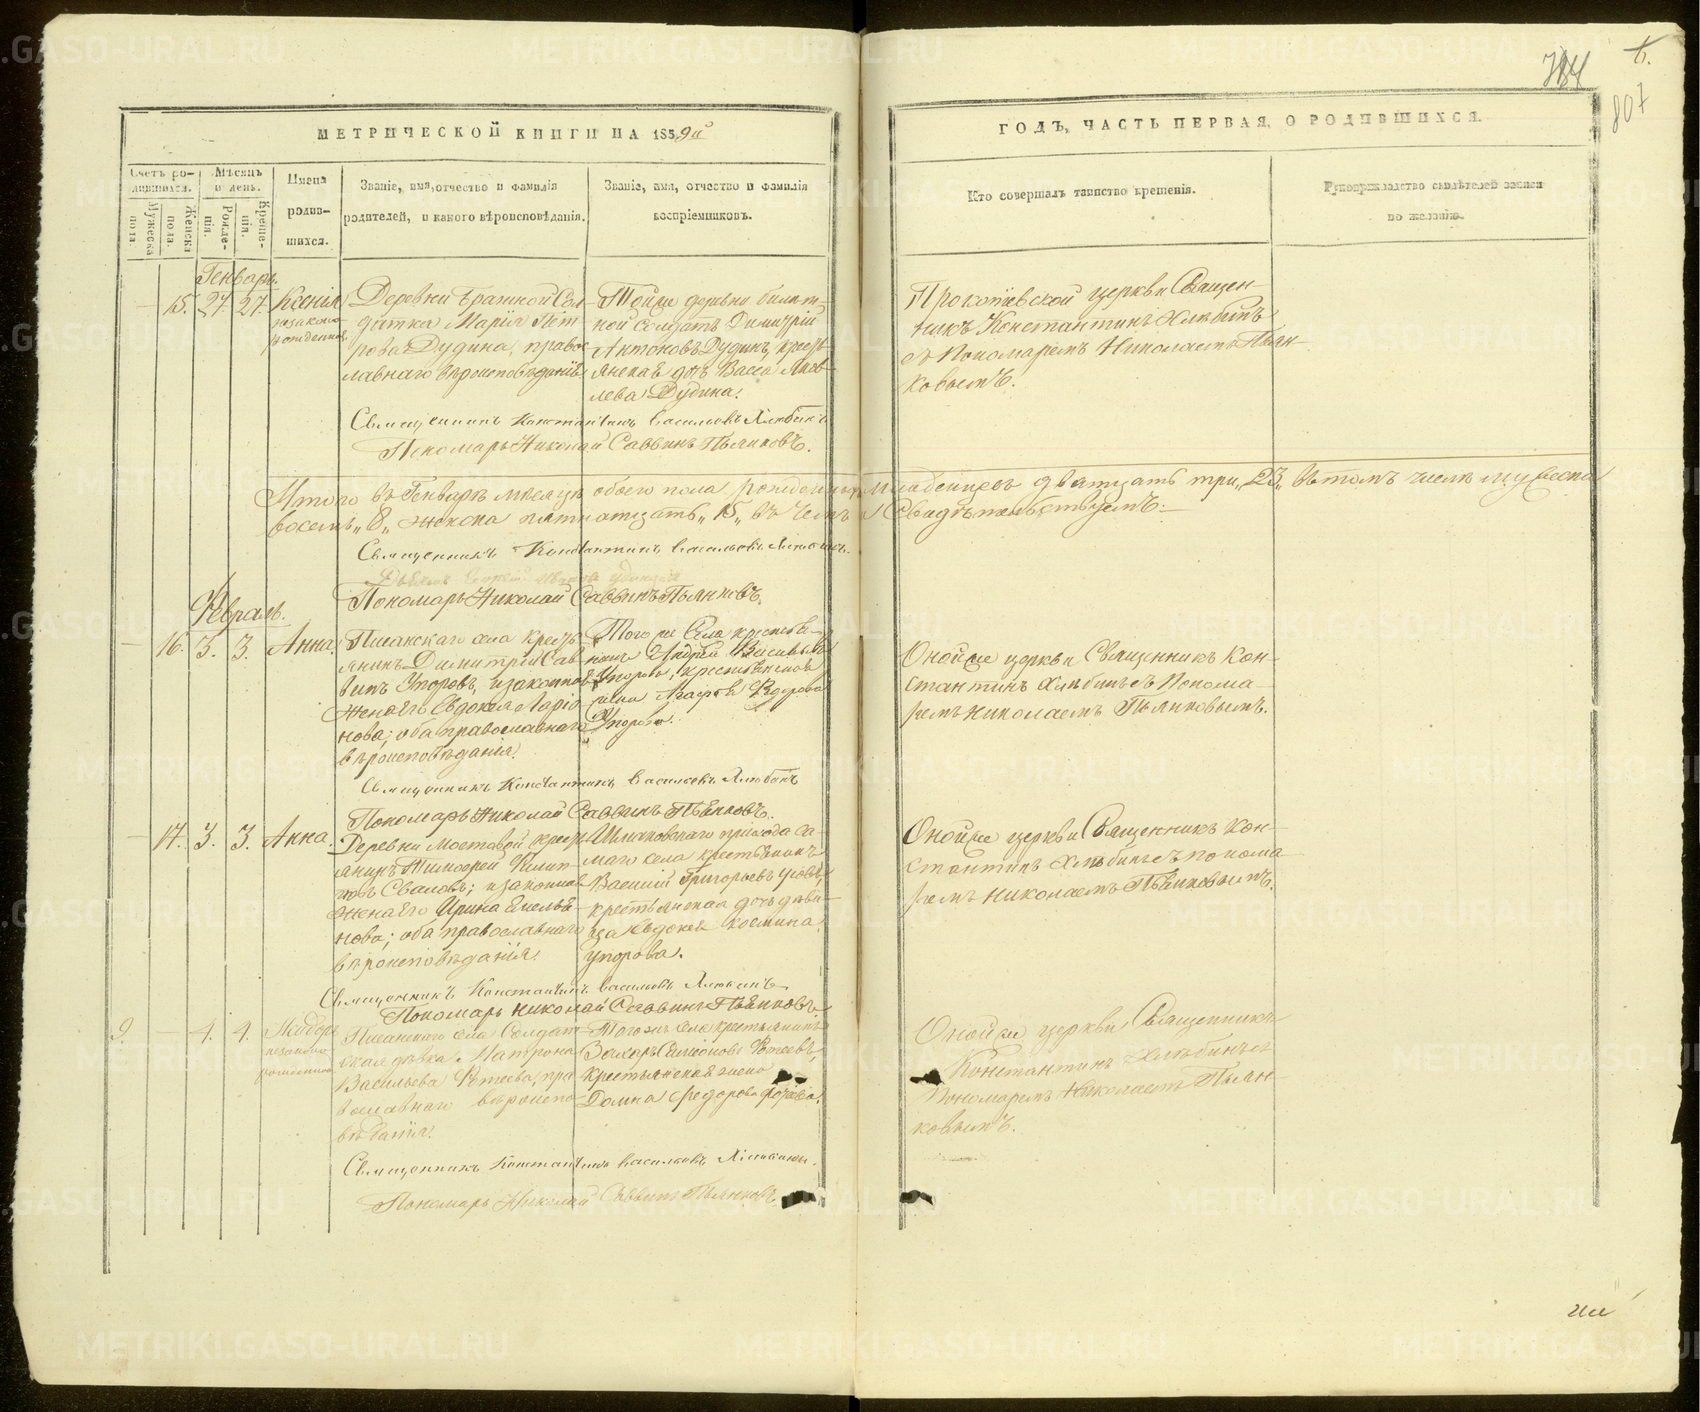 МЕТРИЧЕСКОЙ КНИГИ НА 1859й
ГОДЪ, ЧАСТЬ ПЕРВАЯ, О РОДИВШИХСЯ.
807
Счетъ ро-
дившихся.
Мужеска
пола.
Женска
пола.
Мѣсяцъ
и день.
Рожде-
нія.
Креще-
нія.
Имена
родив-
шихся.
Званіе, имя, отчество и фамилія
родителей, и какого вѣроисповѣданія.
Званіе, имя, отчество и фамилія
воспріемниковъ.
Кто совершалъ таинство крещенія.
Рукоприкладство свидѣтелей записи
по желанію.
Генварь.
15. 27. 27. Ксенія
незаконно
рожденная
Деревни Сол-
датка Марія Пет-
рова Дудина, право
славнаго вѣроисповѣданія
Тойже деревни билет-
ной солдатъ Димитрій
Антоновъ Дудинъ, кресть
янская дочь Васса Яков-
лева Дудина.
Прокопіевской церкви Священ-
никъ Константинъ Хлѣбинъ
съ Пономаремъ Николаемъ Пьян-
ковымъ.
Священникъ Константинъ Васильевъ Хлѣбинъ
Пономарь Николай Саввинъ Пьянковъ.
Итого въ Генварѣ мѣсяцѣ обоего пола рожденныхъ младенцевъ дватцать три „23„ Втомъ числѣ мужеска
восемь „8„ женска пятнатцать „15„ въ чемъ и Свидѣтельствуемъ:
Священникъ Константинъ Васильевъ Хлѣбинъ.
Пономарь Николай Саввинъ Пьянковъ.
Февраль.
16. 3. 3. Анна.
Писанскаго села кресть
янинъ Димитрій Сав-
винъ Упоровъ, изаконная
жена Его Евдокія Ларіо
нова; оба православнаго
вѣроисповѣданія.
Того же Села крестья-
нинъ Андрей Васильевъ
Упоровъ, крестьянская
жена Агафья Ѳедорова
Упорова.
Онойже церкви Священникъ Кон-
стантинъ Хлѣбинъ съ Понома-
ремъ Николаемъ Пьянковымъ.
Священникъ Константинъ Васильевъ Хлѣбинъ
Пономарь Николай Саввинъ Пьянковъ.
17. 3. 3. Анна.
Деревни Мостовой кресть
янинъ Тимофей Филип-
повъ Сваловъ; изаконная
жена Его Ирина Емелья-
нова; оба православнаго
вѣроисповѣданія.
прихода са-
маго села крестьянинъ
Василій Григорьевъ
крестьянская дочь дѣви-
ца Евдокія Космина
Упорова.
Онойже церкви Священникъ Кон-
стантинъ Хлѣбинъ съ понома
ремъ Николаемъ Пьянковымъ.
Священникъ Константинъ Васильевъ Хлѣбинъ
Пономарь Николай Саввинъ Пьянковъ
9. 4. 4. Ѳеодоръ
незаконно
рожденной
Писанскаго села Солдат-
ская дѣвка Матрона
Васильева Фотеева, пра
вославнаго вѣроиспо-
вѣданія.
Тогожъ Села крестьянинъ
Захаръ Симіоновъ Фотеевъ,
крестьянская жена
Домна Федорова Фотеева.
Онойже церкви Священникъ
Константинъ Хлѣбинъ съ
Пономаремъ Николаемъ Пьян-
ковымъ.
Священникъ Константинъ Васильевъ Хлѣбинъ.
Пономарь Николай Саввинъ Пьянковъ
METRIKI.GASO-URAL.RU